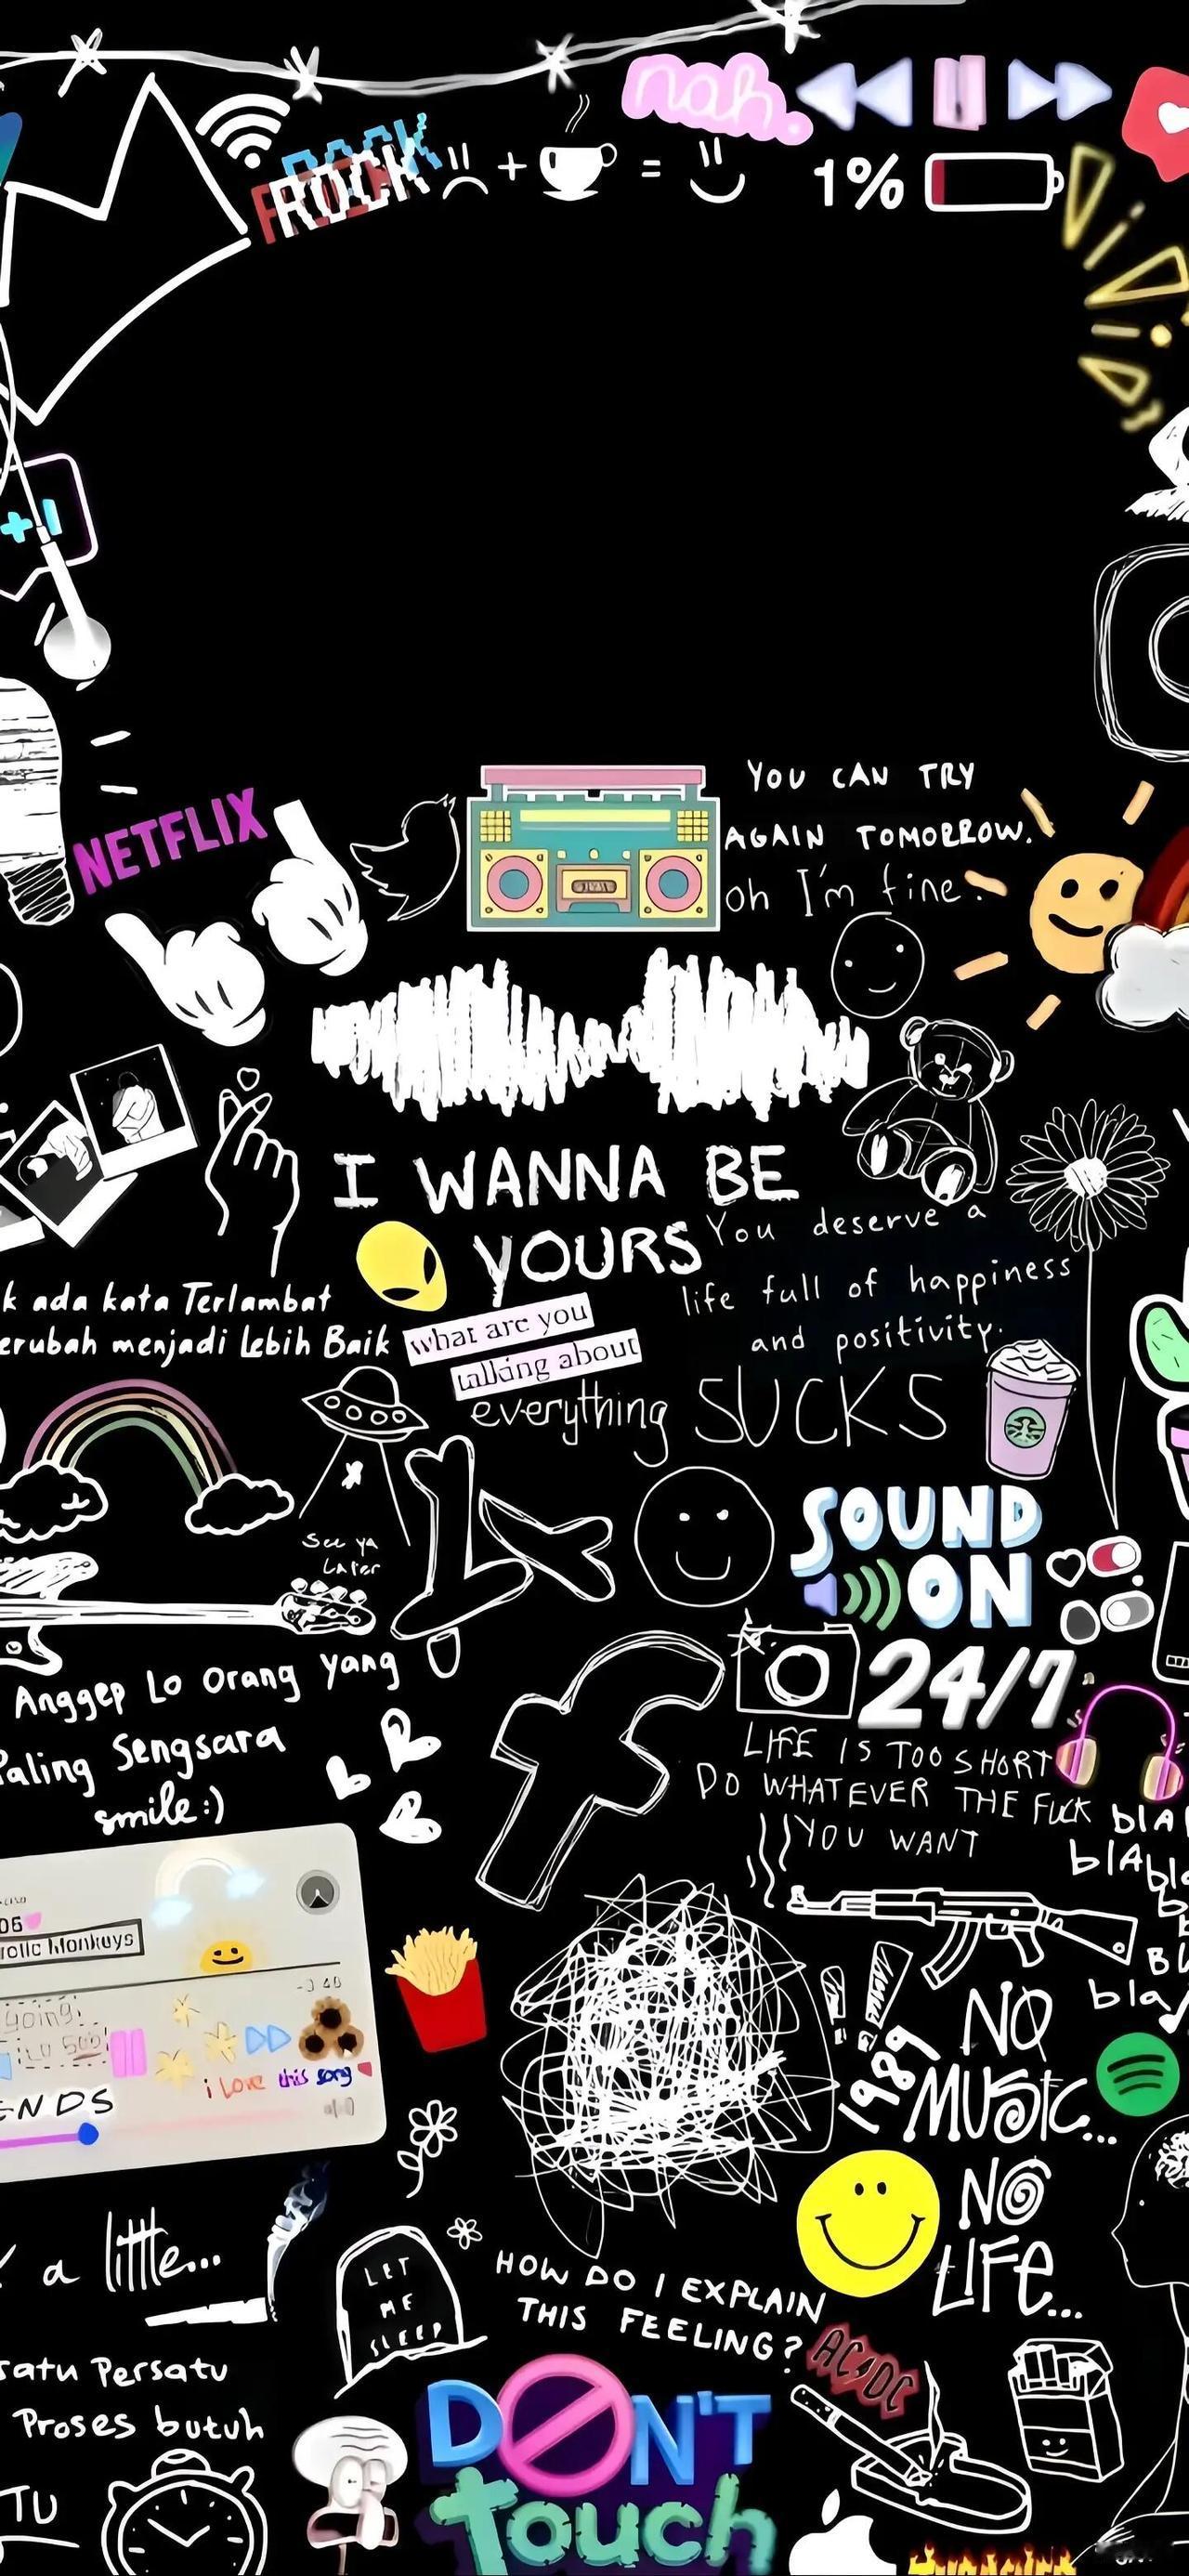 nah.
ROCK
+ =
1%
NETFLIX
YOU CAN TRY
AGAIN TOMORROW.
oh I'm fine.
I WANNA BE
YOURS
You deserve a
life full of happiness
and positivity.
k ada kata Terlambat
erubah menjadi Lebih Baik
what are you
talking about
everything SUCKS
See ya
Later
SOUND
ON
24/7
Anggep Lo Orang yang
Paling Sengsara
smile:)
LIFE IS TOO SHORT
DO WHATEVER THE FUCK
YOU WANT
bla
bla
bla
06
Monkeys
going
i Love this song
ENDS
1989
NO
MUSIC...
NO
LIFE...
a little...
LET
ME
SLEEP
HOW DO I EXPLAIN
THIS FEELING?
AC/DC
satu Persatu
Proses butuh
TU
DON'T
Touch